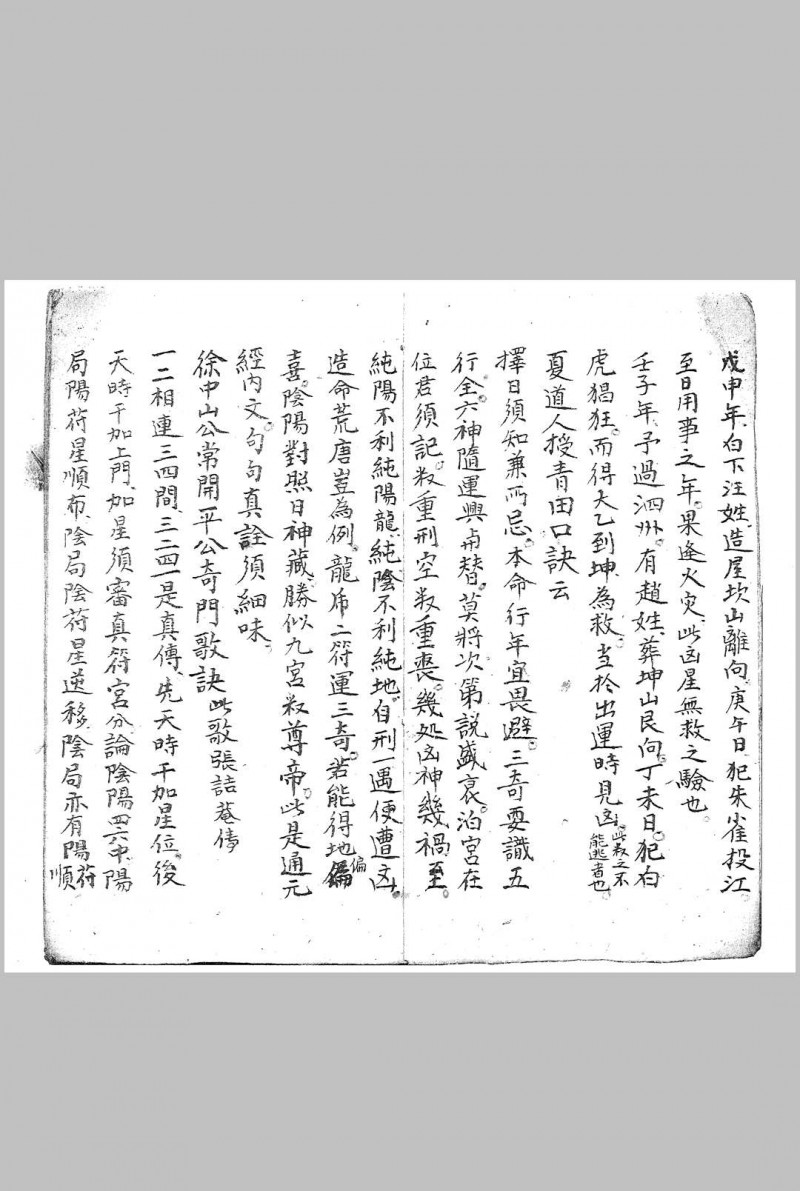 戊申年、白下汪姓、造屋坎山離向、庚午日、犯朱雀投江
至日用事之年。果逢火灾、此凶星無救之驗也、
壬子年、予過泗州。有趙姓、葬坤山艮向。丁未日。犯白
虎猖狂。而得大乙到坤、為救。当於出運時見凶。此救之不能逃者也、
夏道人授青田口訣云
擇日須知兼所忌。本命行年宜畏避。三奇要識五
行全。六神隨運興與替。莫將次第説盛衰。泊宮在
位君須記。殺重刑空殺重喪。幾処凶神幾禍至。
純陽不利純陽龍、純陰不利純地。自刑一遇便遭凶、
造命荒唐豈為例。龍虎二符運三奇。若能得地偏
喜。陰陽對照日神藏。勝似九宮殺尊帝。此是通元
經內文。句句真詮須細味。
徐中山公常開平公奇門歌訣此歌張詰菴傳
一二相連三四間、三二四一是真傳、先天時干加星位。後
天時干加上門、加星須審真符宮、分論陰陽四六中、陽
局陽符星順布、陰局陰符星逆移、陰局亦有陽符順